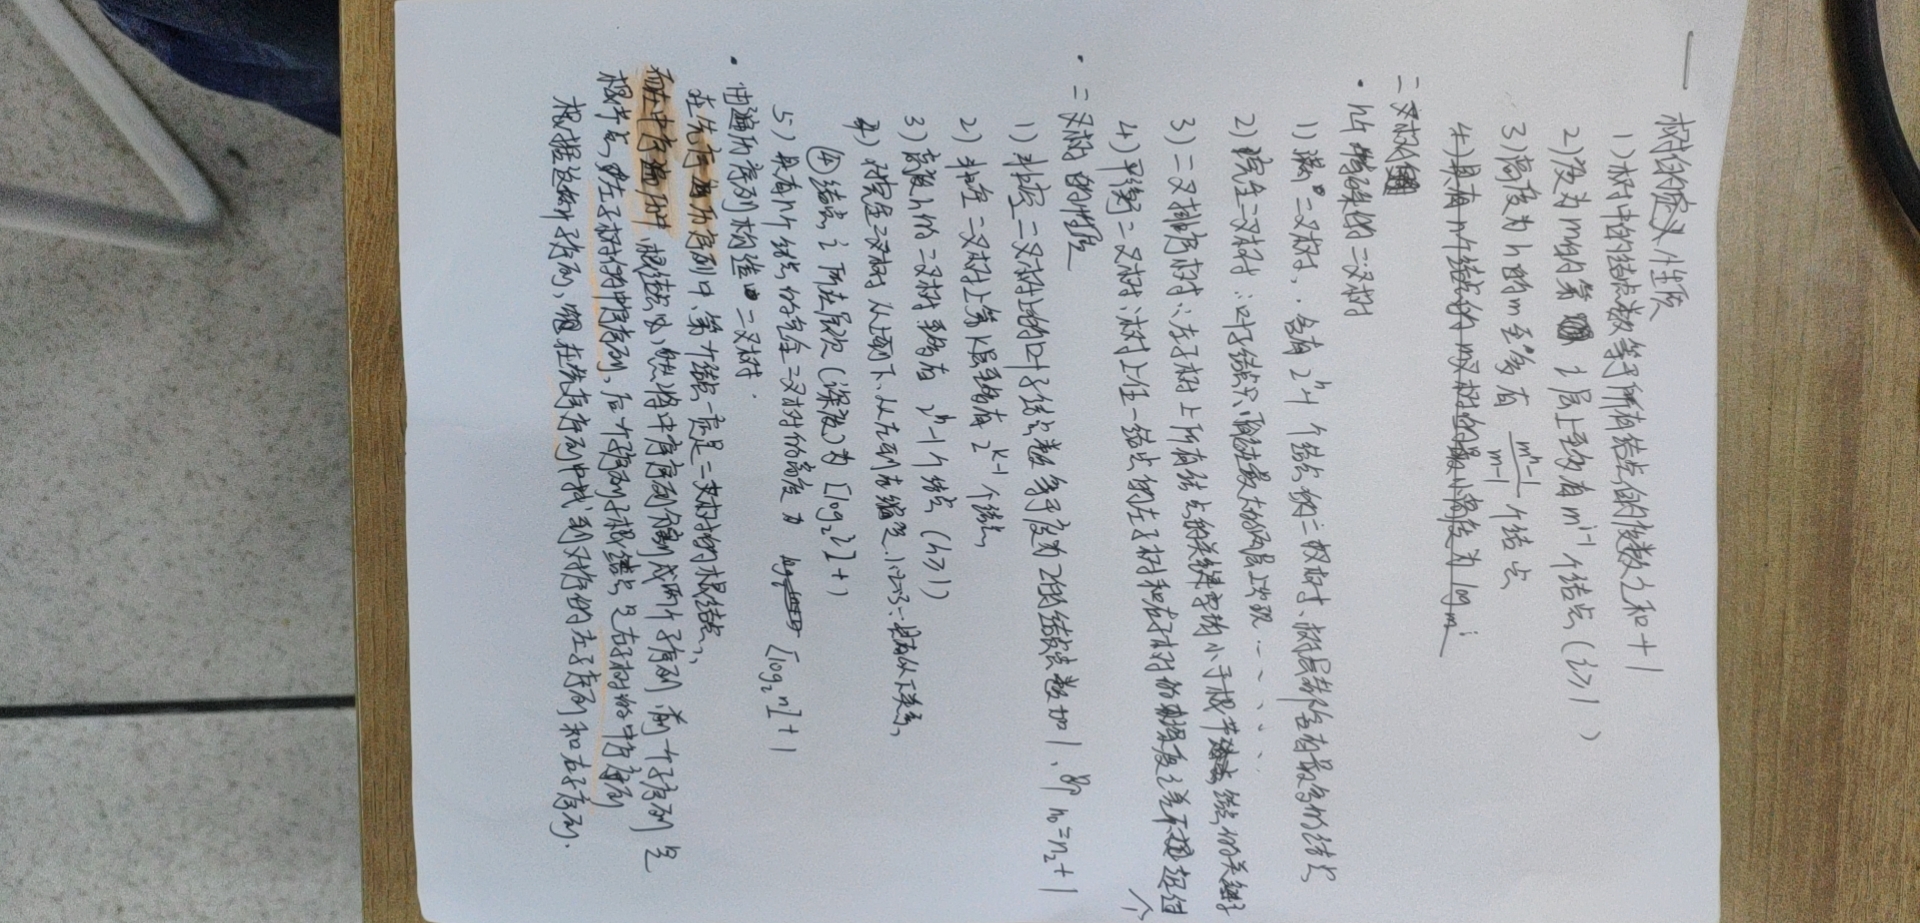 树的定义性质
1)树中的结点数等于所有结点的度数之和+1
2)度为m的第 i 层上至多有 m^{i-1} 个结点(i≥1)
3)高度为h的m至多有 \frac{m^h-1}{m-1} 个结点
4)具有n个结点的m叉树的最小高度为 log_m^i
二叉树
· 几个特殊的二叉树
1)满二叉树: 含有 2^h-1 个结点的二叉树,树层都含有最多的结点
2)完全二叉树:叶子结点只可能在最大的两层上出现……
3)二叉排序树:左子树上所有结点的关键字均小于根节结点的关键字
4)平衡二叉树:树上任一结点的左子树和右子树的深度之差不超过
个
· 二叉树的性质
1)非空二叉树上的叶子结点数等于度为2的结点数加1,即 n₀=n₂+1
2)非空二叉树上第K层至多有 2^{K-1} 个结点
3)高度h的二叉树至多有 2^h-1个结点(h≥1)
4)对完全二叉树从上到下、从左到右编号 1.2.3…具有以下关系、
④结点i所在层次(深度)为 [log₂i]+1
5)具有n个结点的完全二叉树的高度为 [log₂n]+1
· 由遍历序列构造二叉树.
在先序遍历序列中、第一个结点一定是二叉树的根结点,
而在中序遍历中,根结点必然将中序序列分割成两个子序列,前一个子序列是
根节点左子树的中序序列、后一个子序列子根结点是右子树的中序序列
根据这两个子序列、在先序序列中找到对应的左子序列和右子序列.